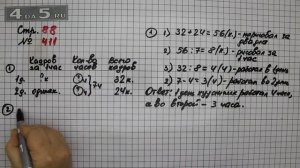 4 ДА 5
RU
Стр. 88
№ 411
① Кадров за 1 час
Кол-во часов
Всего кадров
1д. ?к
?ч
32к.
2д. одинак.
?ч
24к.
7ч
②
① 1) 32+24=56(к.) - нарисовал за два дня
2) 56:7=8(к.) - рисовал за 1 час
3) 32:8=4(ч) - работал в 1 день
4) 7-4=3(ч) - работал во 2 день
Ответ: 1 день художник работал 4 часа,
а во второй - 3 часа.